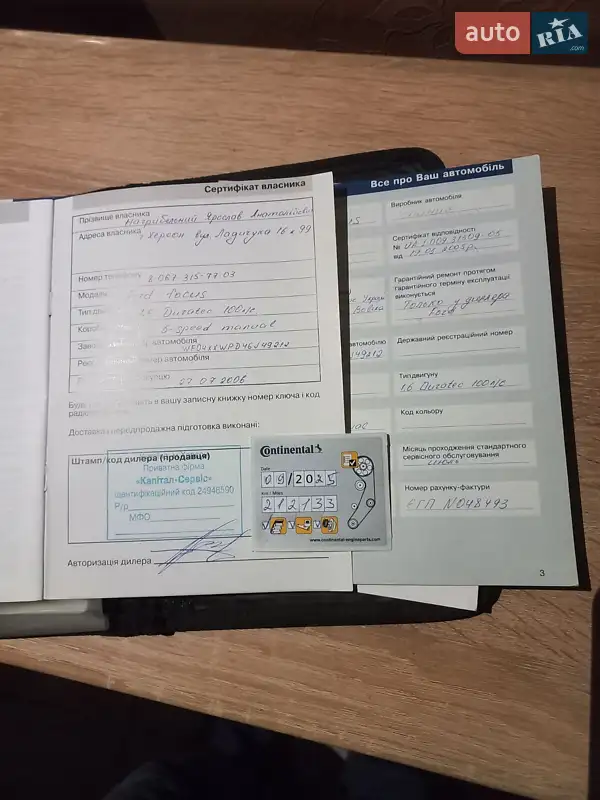 auto RIA .com
Сертифікат власника
Прізвище власника Нагрибельний Ярослав Анатолійович
Адреса власника г. Херсон вул. Ладичука 16 кв 99
Номер тел 8-067-315-77-03
Модель Ford Focus
Тип дв 1,6 Duratec 100 л/с
Короб 5-speed manual
автомобіля
мер автомобіля
27.07.2006
вашу записну книжку номер ключа і код
Доставка і передпродажна підготовка виконані:
Штамп/код дилера (продавця)
Приватна фірма
«Капітал-Сервіс»
Ідентифікаційний код 24946590
Р/р
МФО
Авторизація дилера
Continental
Date
09/2025
Km / Miles
212133
www.continental-engineparts.com
Все про Ваш автомобіль
Виробник автомобіля
Сертифікат відповідності
№
від
Гарантійний ремонт протягом
гарантійного терміну експлуатації
виконується
Только у дилера
Ford
Державний реєстраційний номер
Тип двигуну
1,6 Duratec 100 л/с
Код кольору
Місяць проходження стандартного
сервісного обслуговування
Номер рахунку-фактури
ЄГП N048493
3